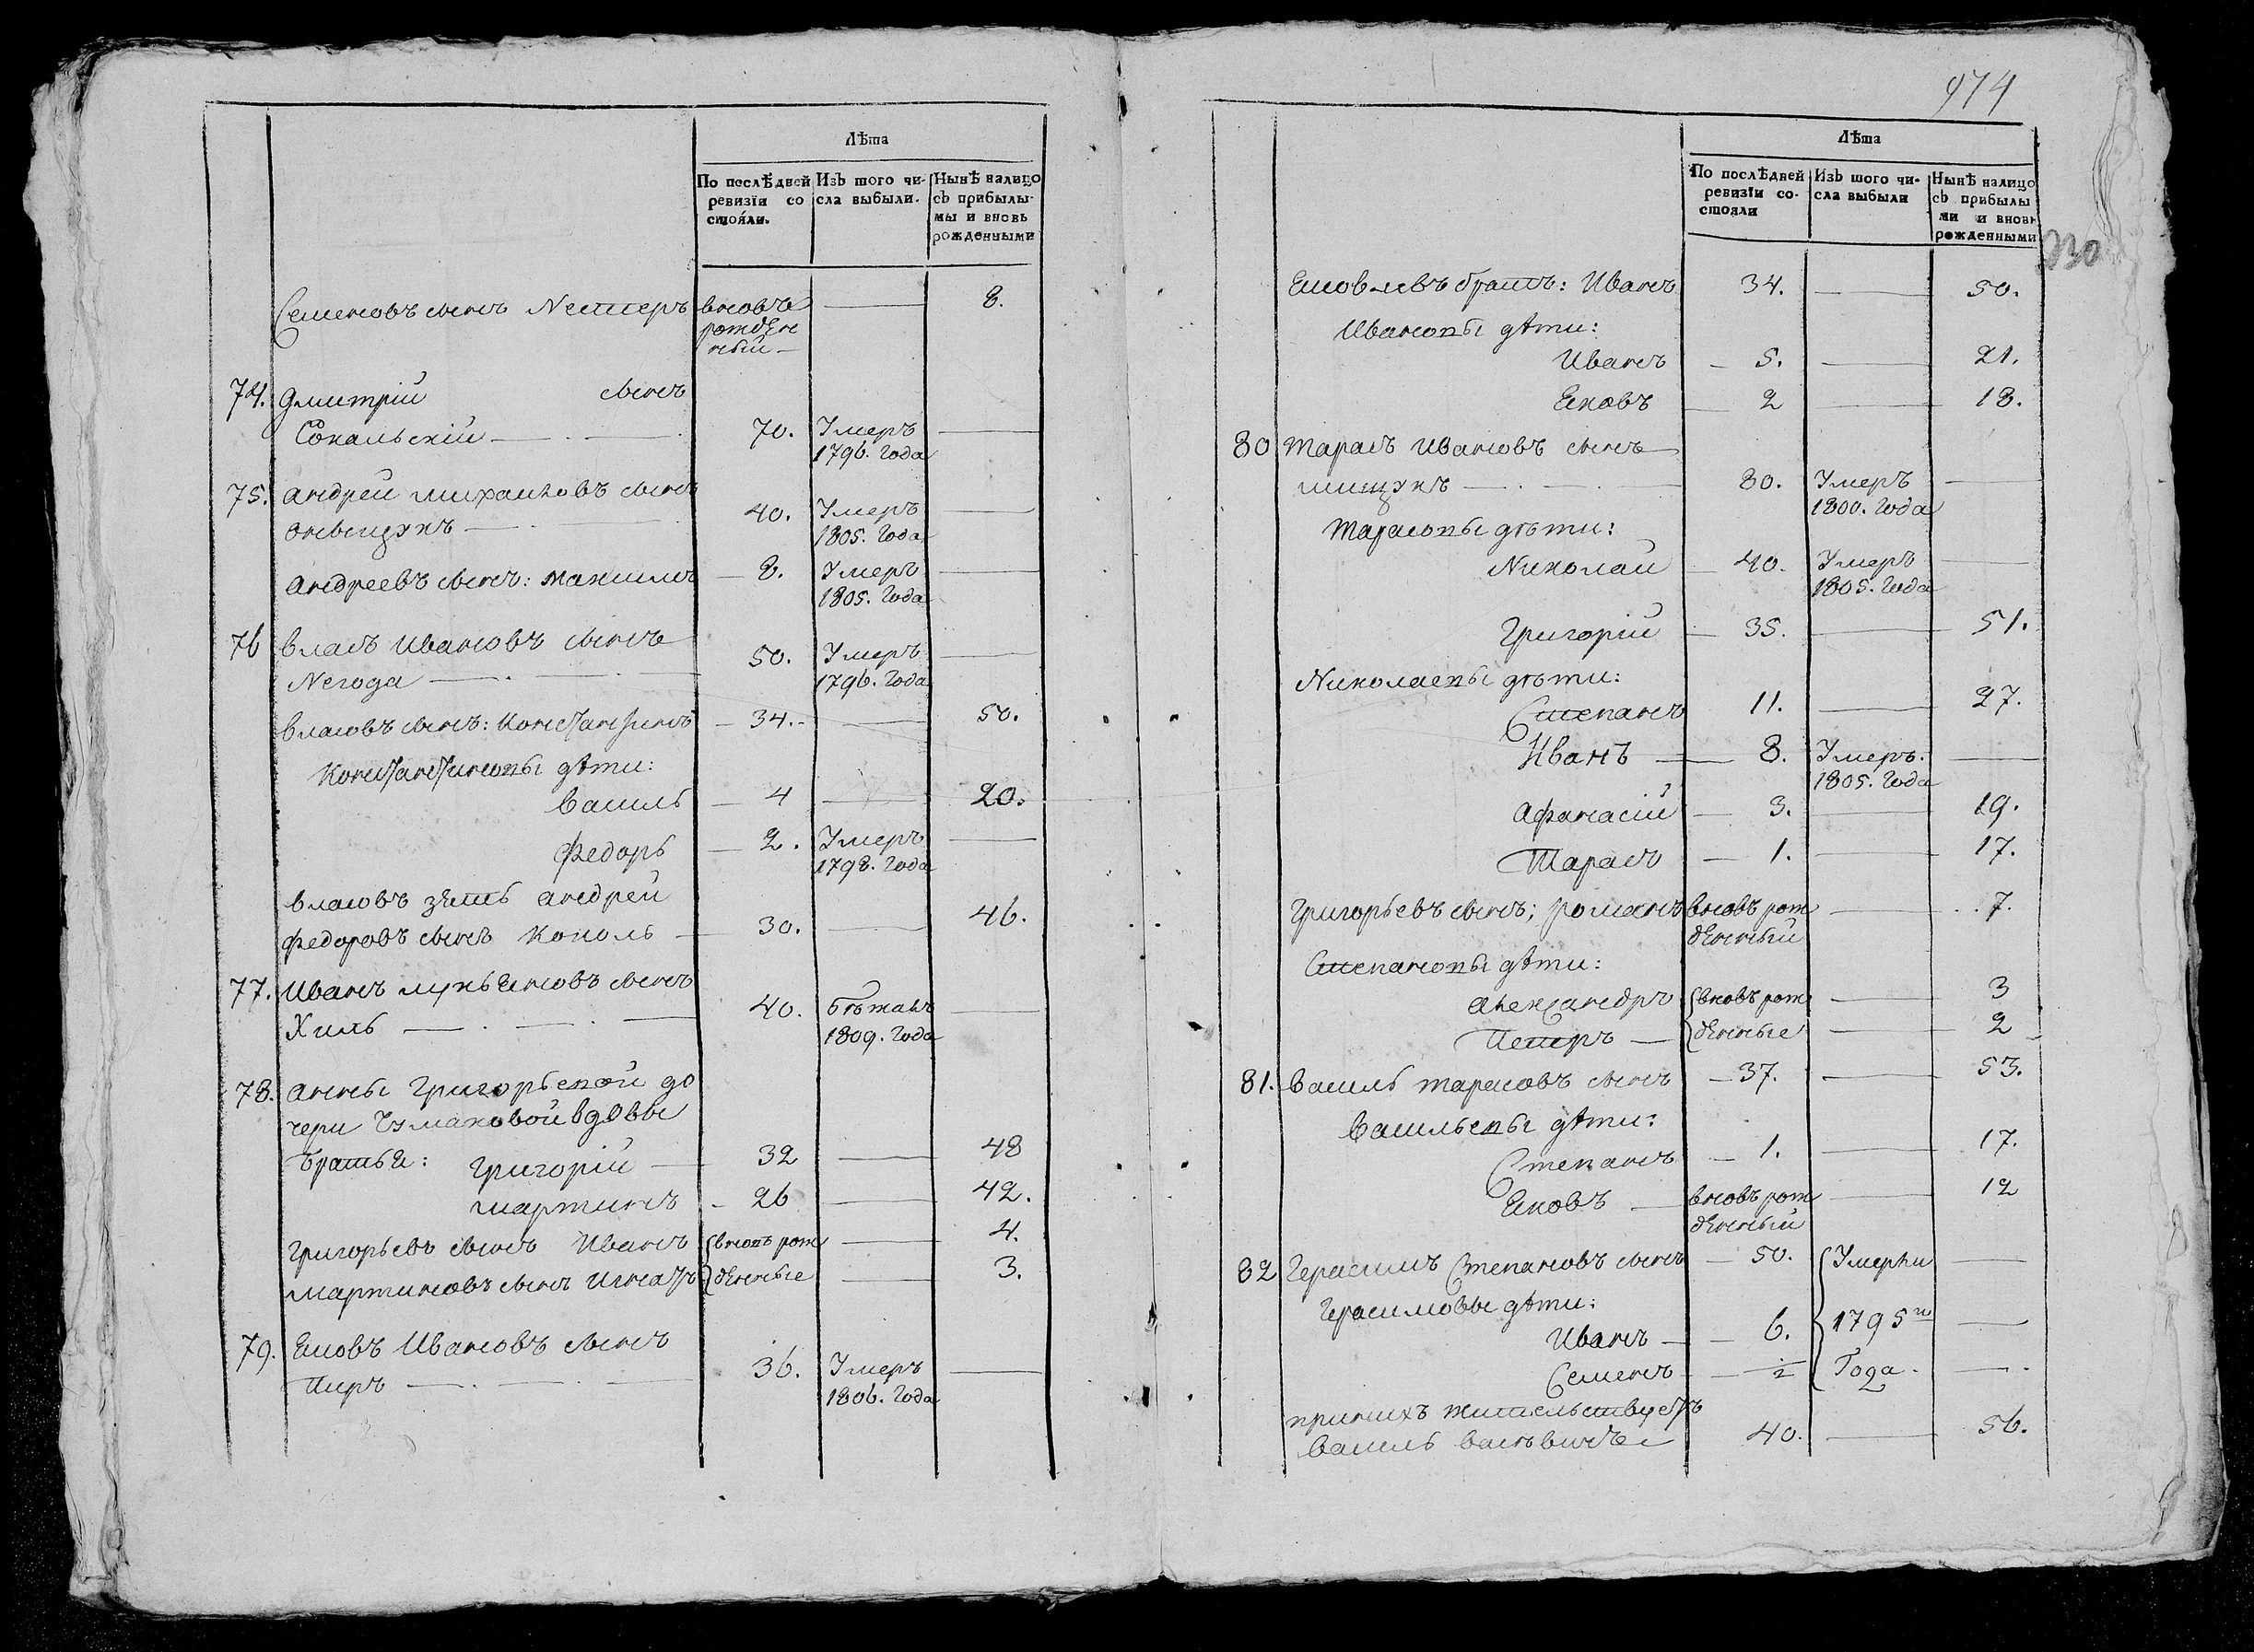 Лѣта
По послѣдней Изъ того чи- Нынѣ налицо
ревизїи со сла выбыли. съ прибылы-
стояли. мы и вновь
рожденными
Семеновъ сынъ Нестеръ вновь — 8.
рожден
ный —
74. Дмитрій сынъ
Сокальскій — 70. Умеръ —
1796. Года
75. Андрей Михайловъ сынъ
40. Умеръ —
1805. Года
Андреевъ сынъ: Максимъ — 8. Умеръ —
1805. Года
76 Власъ Ивановъ сынъ
Негода — 50. Умеръ —
1796. Года
Власовъ сынъ: Константинъ — 34. — 50.
Константиновы дѣти:
Василь — 4 — 20.
Федоръ — 2. Умеръ —
1798. Года
Власовъ зять Андрей
Федоровъ сынъ Коваль — 30. — 46.
77. Иванъ Лукьяновъ сынъ
Хиль — 40. Бѣжалъ —
1809. Года
78. Анны Григорьевой до
чери Чумаковой вдовы
Братья: Григорій — 32 — 48
Мартинъ — 26 — 42.
Григорьевъ сынъ Иванъ вновь рож — 4.
Мартиновъ сынъ Игнатъ денные — 3.
79. Яковъ Ивановъ сынъ
36. Умеръ —
1806. Года
974
Лѣта
По послѣдней Изъ того чи- Нынѣ налицо
ревизїи со- сла выбыли съ прибылы
стояли ми и вновь
рожденными
Яковлевъ братъ: Иванъ 34. — 50.
Ивановы дѣти:
Иванъ — 5. — 21.
Яковъ — 2 — 18.
80 Тарасъ Ивановъ сынъ —
Мищукъ — 80. Умеръ —
1800. Года
Тарасовы дѣти:
Николай — 40. Умеръ —
1805. Года
Григорій — 35. — 51.
Николаевы дѣти:
Степанъ 11. — 27.
Иванъ — 8. Умеръ. —
1805. Года
Афанасій — 3. — 19.
Тарасъ — 1. — 17.
Григорьевъ сынъ; Романъ вновь рож — 7.
денный
Степановы дѣти:
Александръ вновь рож — 3
Петръ — денные — 2
81. Василь Тарасовъ сынъ — 37. — 53.
Васильевы дѣти:
Степанъ — 1. — 17.
Яковъ — вновь рож — 12
денный
82 Герасимъ Степановъ сынъ — 50. Умерли —
Герасимовы дѣти:
Иванъ — 6. 1795го —
Семенъ — Года. —
При нихъ жительствуетъ
Василь 40. — 56.